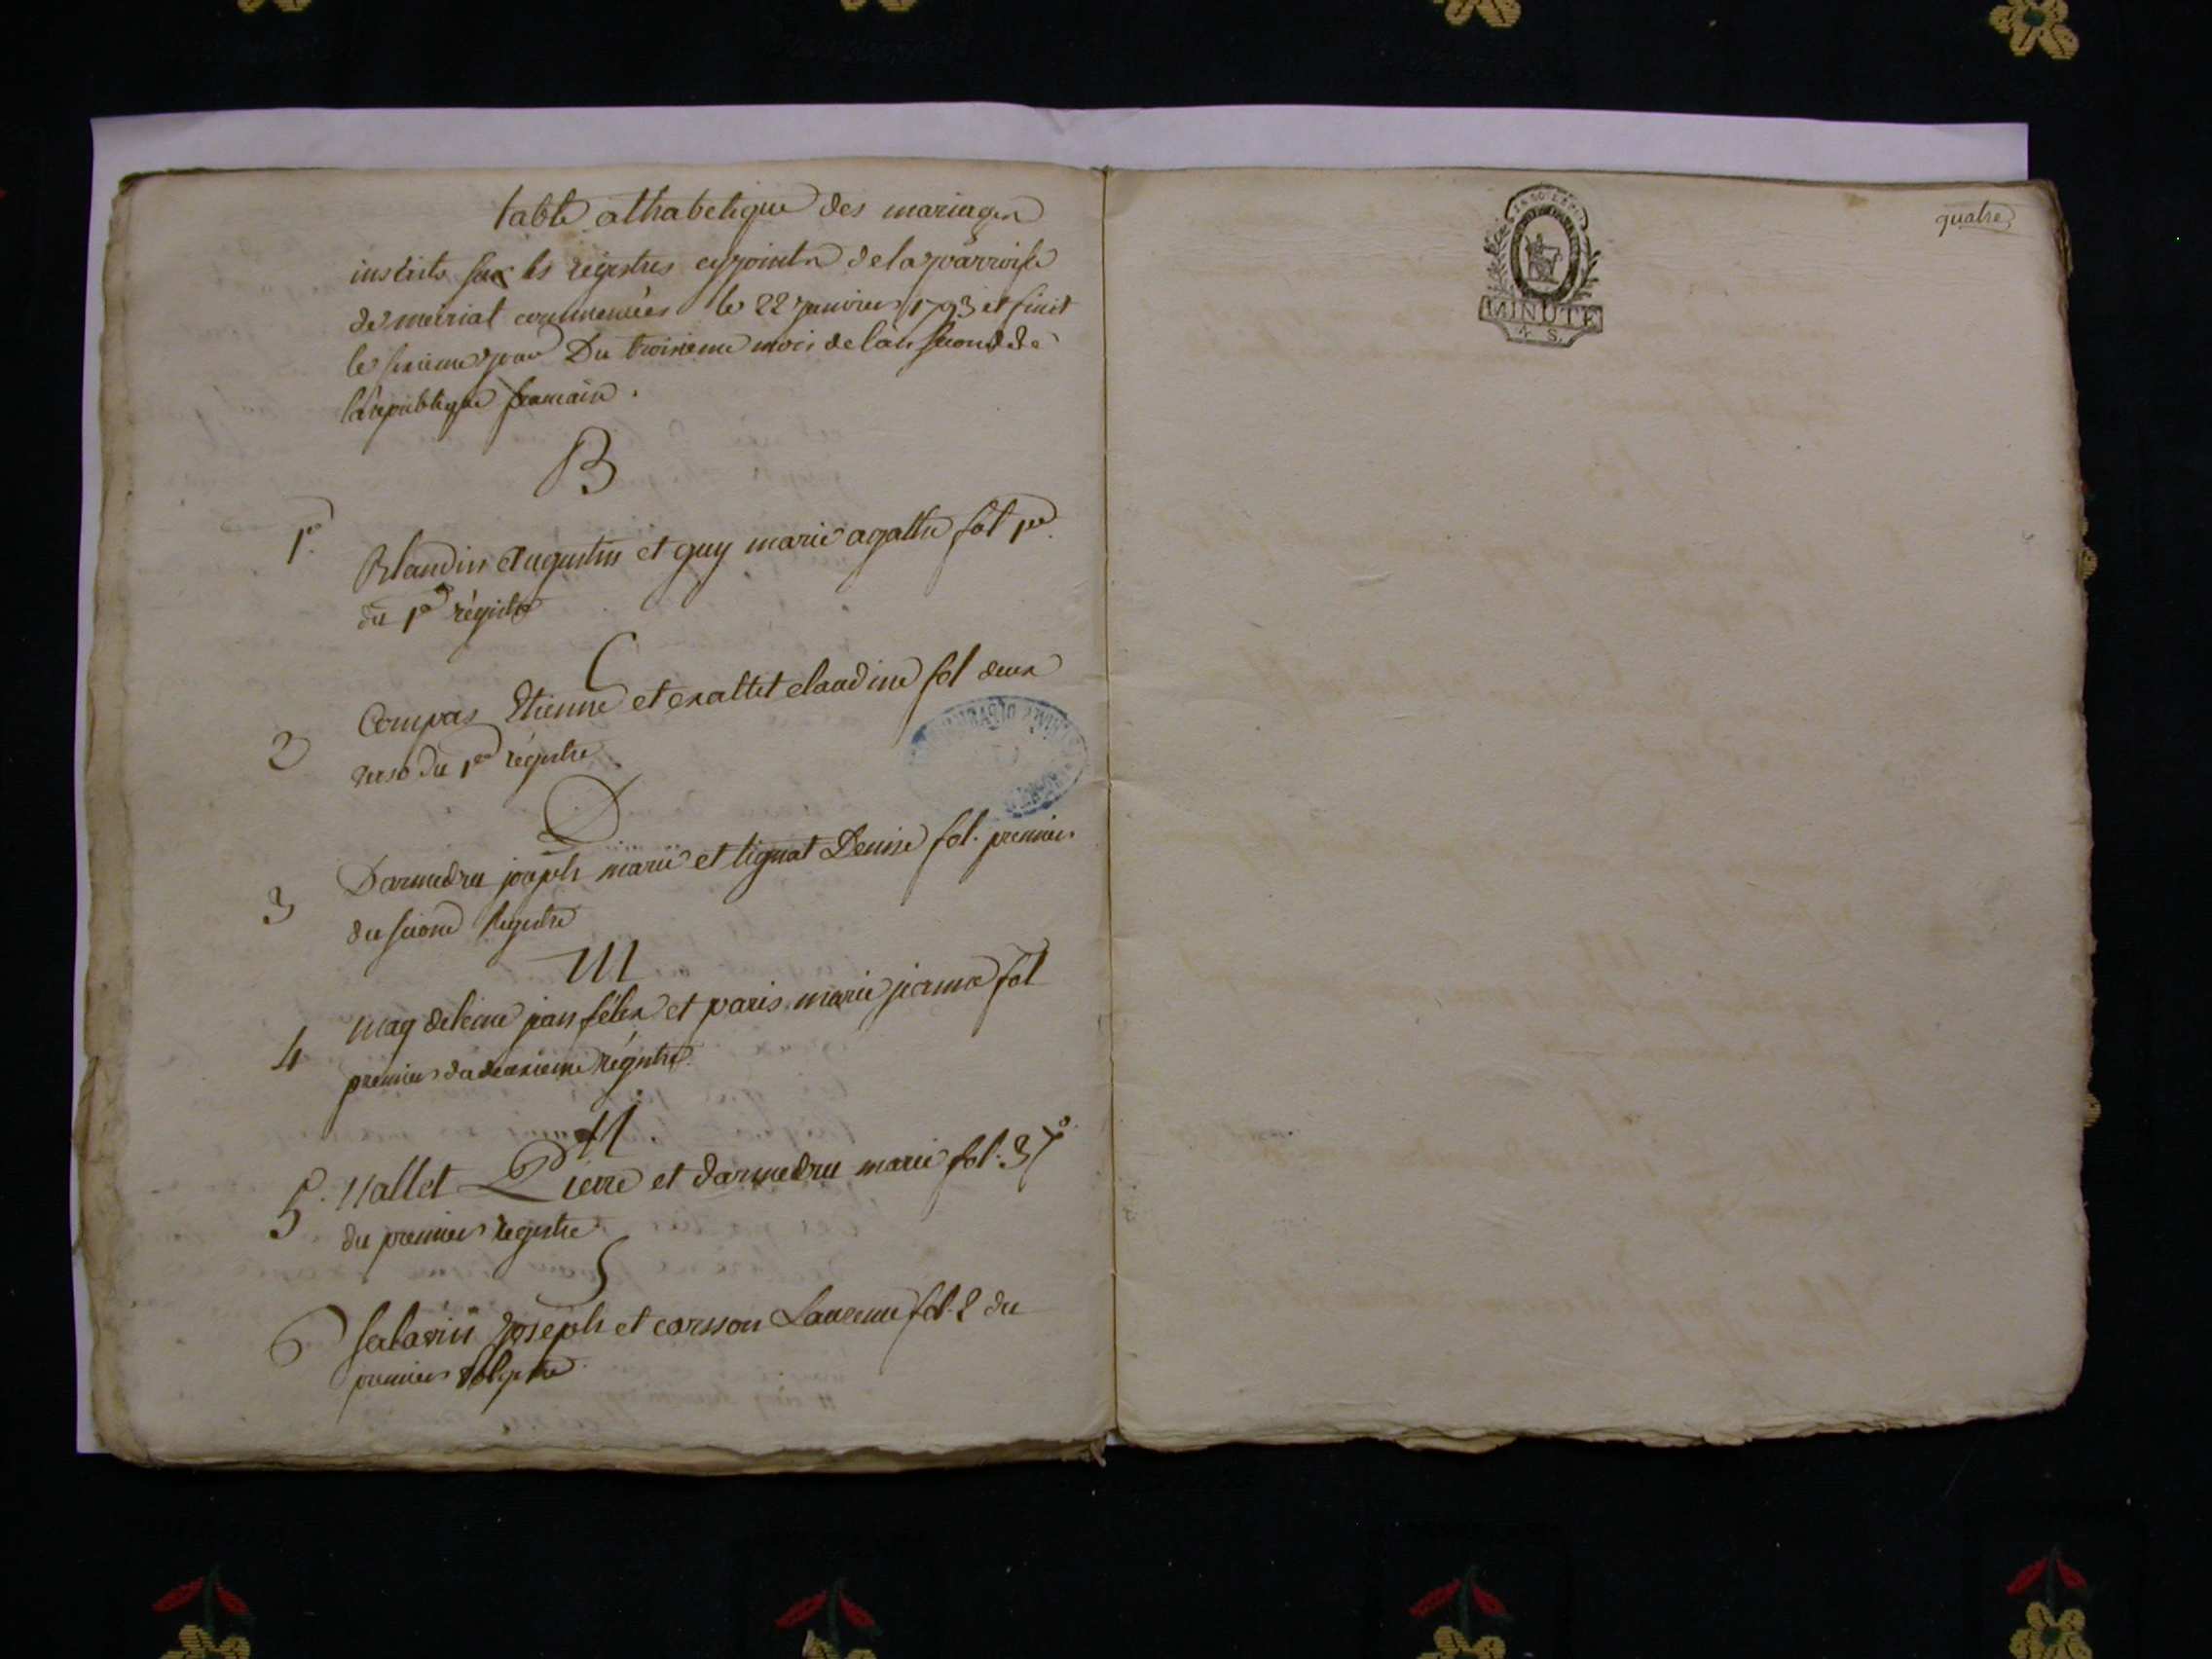 table alhabetique des mariages
inscrits sur les régistres cyjoints de la parroisse
de meiriat commencées le 22 janvier 1793 et finit
le sixieme jour Du troisieme mois de l'an second de
la republique francaise.
B
1er
Blandin Augustin et guy marie agathe fol 1er
du 1er régistre
C
Compas Etienne et exaltet claudine fol deux
2
verso du 1er régistre
D
Darmedru joseph marie et tignat Denise fol. premier
3
du second Registre
M
Magdeleine jean félix et paris marie jeanne fol
4
premier du deuxieme régistre
N
5. Nallet Pierre et darmedru marie fol. 3 vo
du premier registre
S
6 Salavin Joseph et corsson Laurence fol. 2 du
premier
MINUTE
4 S.
quatre